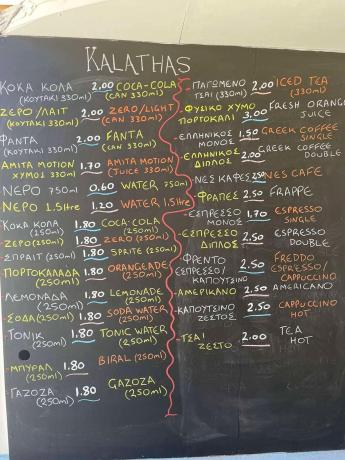 KALATHAS
ΚΟΚΑ ΚΟΛΑ 2,00 COCA-COLA
(ΚΟΥΤΑΚΙ 330ml) (CAN 330ml)
ΖΕΡΟ/ΛΑΙΤ 2.00 ZERO/LIGHT
(ΚΟΥΤΑΚΙ 330ml) (CAN 330ml)
ΦΑΝΤΑ 2.00 FANTA
(ΚΟΥΤΑΚΙ 330ml) (CAN 330ml)
ΑΜΙΤΑ MOTION 1.70 AMITA MOTION
ΧΥΜΟΣ 330ml (JUICE 330ml)
ΝΕΡΟ 750ml 0.60 WATER 750ml
ΝΕΡΟ 1.5litre 1.20 WATER 1.5litre
ΚΟΚΑ ΚΟΛΑ 1.80 COCA-COLA
(250ml) (250ml)
ΖΕΡΟ (250ml) 1.80 ZERO (250ml)
ΣΠΡΑΙΤ (250ml) 1.80 SPRITE (250ml)
ΠΟΡΤΟΚΑΛΑΔΑ 1.80 ORANGEADE
(250ml) (250ml)
ΛΕΜΟΝΑΔΑ 1.80 LEMONADE
(250ml) (250ml)
ΣΟΔΑ (250ml) 1.80 SODA WATER
(250ml)
ΤΟΝΙΚ 1.80 TONIC WATER
(250ml) (250ml)
ΜΠΥΡΑΛ 1.80 BIRAL (250ml)
(250ml)
ΓΑΖΟΖΑ 1.80 GAZOZA
(250ml) (250ml)
ΠΑΓΩΜΕΝΟ 2,00 ICED TEA
ΤΣΑΙ (330ml) (330ml)
ΦΥΣΙΚΟ ΧΥΜΟ FRESH ORANGE
ΠΟΡΤΟΚΑΛΙ 3,00 JUICE
ΕΛΛΗΝΙΚΟΣ 1.50 GREEK COFFEE
ΜΟΝΟΣ SINGLE
ΕΛΛΗΝΙΚΟΣ 2,00 GREEK COFFEE
ΔΙΠΛΟΣ DOUBLE
ΝΕΣ ΚΑΦΕΣ 2.50 NES CAFE
ΦΡΑΠΕΣ 2.50 FRAPPE
ΕΣΠΡΕΣΣΟ 1.70 ESPRESSO
ΜΟΝΟΣ SINGLE
ΕΣΠΡΕΣΣΟ 2.50 ESPRESSO
ΔΙΠΛΟΣ DOUBLE
ΦΡΕΝΤΟ 2.50 FREDDO
ΕΣΠΡΕΣΣΟ/ ESPRESSO/
ΚΑΠΟΥΤΣΙΝΟ CAPPUCCINO
ΑΜΕΡΙΚΑΝΟ 2.50 AMERICANO
ΚΑΠΟΥΤΣΙΝΟ 2.50 CAPPUCCINO
ΖΕΣΤΟΣ HOT
ΤΣΑΙ 2.00 TEA
ΖΕΣΤΟ HOT